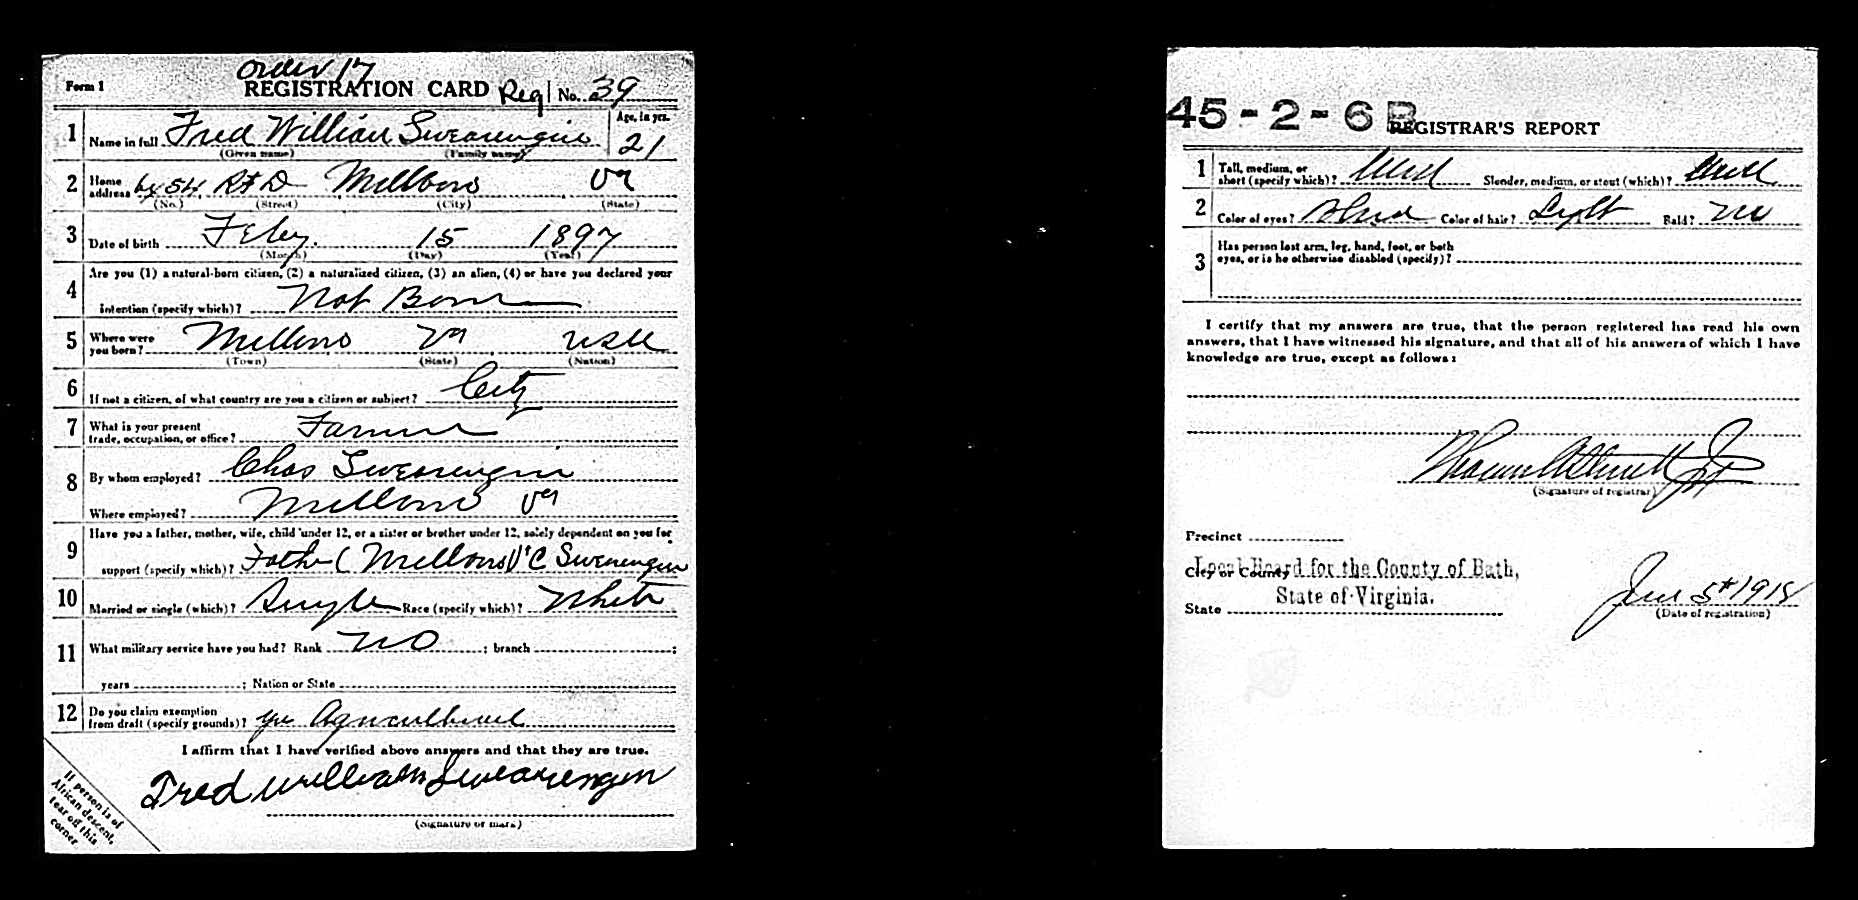 Order 17
Form 1 REGISTRATION CARD Reg No. 39
1 Name in full Fred William Swearengin Age, in yrs. 21
(Given name) (Family name)
2 Home address Bx 54 RFD Millboro Va
(No.) (Street) (City) (State)
3 Date of birth Feby. 15 1897
(Month) (Day) (Year)
4 Are you (1) a natural-born citizen, (2) a naturalized citizen, (3) an alien, (4) or have you declared your
intention (specify which)? Nat Born
5 Where were you born? Millboro Va USA
(Town) (State) (Nation)
6 If not a citizen, of what country are you a citizen or subject?
7 What is your present
trade, occupation, or office? Farmer
8 By whom employed? Chas Swearengin
Where employed? Millboro Va
9 Have you a father, mother, wife, child under 12, or a sister or brother under 12, solely dependent on you for
support (specify which)? Father (Millboro) C Swearengin
10 Married or single (which)? Single Race (specify which)? White
11 What military service have you had? Rank NO ; branch ;
years ; Nation or State
12 Do you claim exemption
from draft (specify grounds)? yes Agricultural
I affirm that I have verified above answers and that they are true.
Fred William Swearengin
(Signature or mark)
If person is of
African descent,
tear off this
corner
45-2-6 B
REGISTRAR'S REPORT
1 Tall, medium, or
short (specify which)? Med Slender, medium, or stout (which)? Med
2 Color of eyes? Color of hair? Light Bald? No
3 Has person lost arm, leg, hand, foot, or both
eyes, or is he otherwise disabled (specify)?
I certify that my answers are true, that the person registered has read his own
answers, that I have witnessed his signature, and that all of his answers of which I have
knowledge are true, except as follows:
(Signature of registrar)
Precinct
City or County Local Board for the County of Bath,
State State of Virginia.
June 5th 1918
(Date of registration)